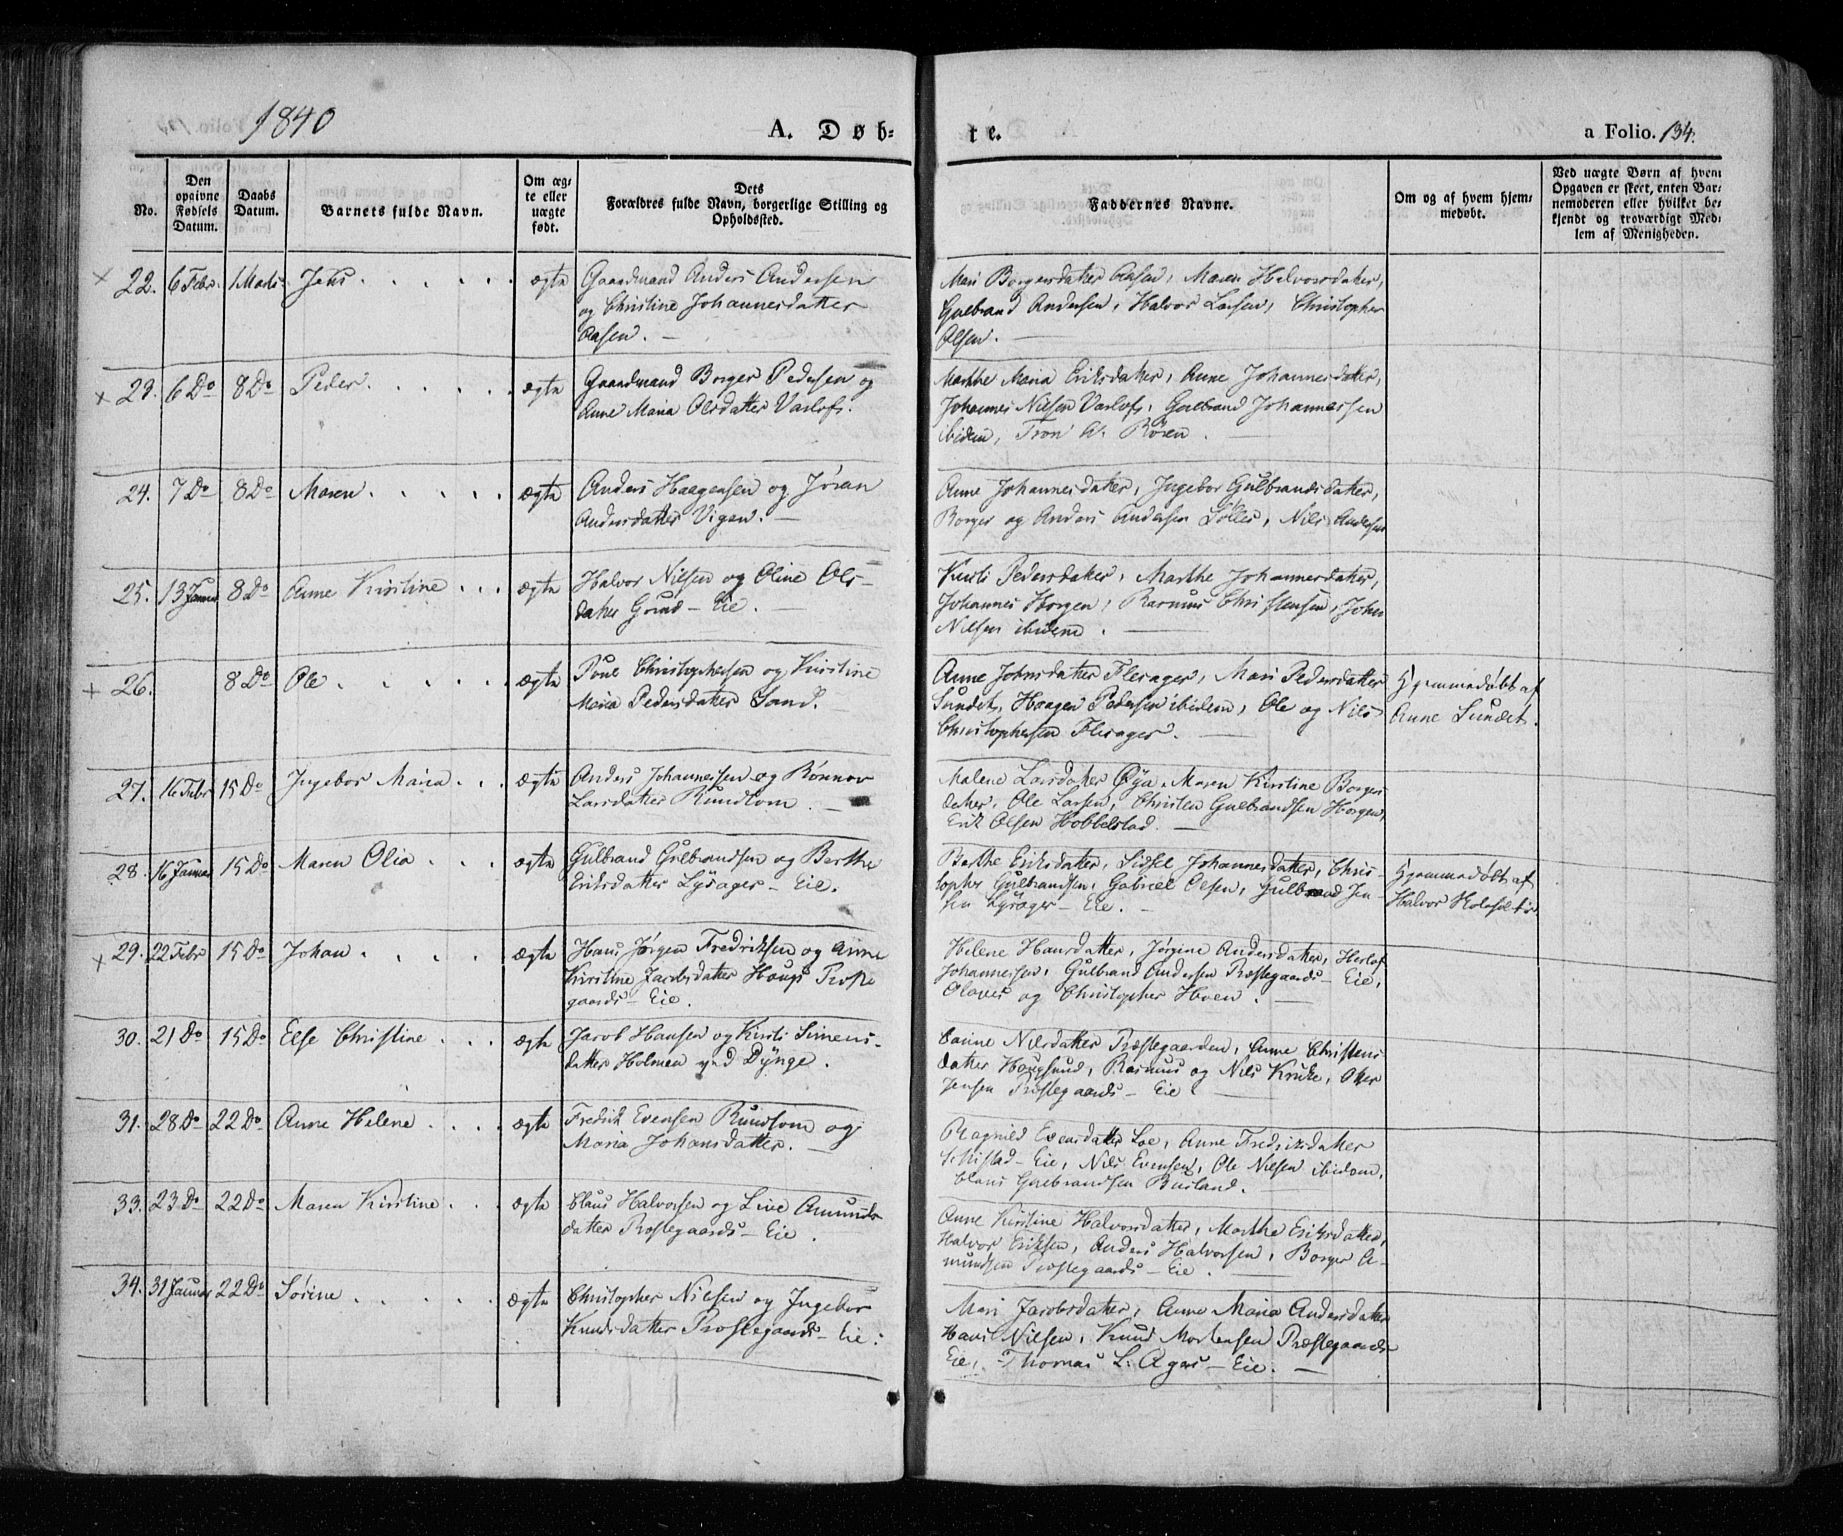 1840
A. Døb-
te.
a Folio. 134.
No.
Den
opgivne
Fødsels
Datum.
Daabs
Datum.
Barnets fulde Navn.
Om æg-
te eller
uægte
født.
Dets
Forældres fulde Navn, borgerlige Stilling og
Opholdssted.
Faddernes Navne.
Om og af hvem hjem-
medøbt.
Ved uægte Børn af hvem
Opgaven er skeet, enten Bar-
nemoderen eller hvilket be-
kjendt og troværdigt Med-
lem af Menigheden.
× 22. 6 Febr. 1 Marts Jens ægte Gaardmand Anders Andersen
og Christine Johannesdatter
Aasen.
Mari Borgersdatter Aasen, Maren Halvorsdatter,
Gulbrand Andersen, Halvor Larsen, Christopher
Olsen.
× 23. 6 Do 8 Do Peder ægte Gaardmand Borger Pedersen og
Anne Maria Olsdatter Varlofs.
Marthe Maria Eriksdatter, Anne Johannesdatter,
Johannes Nilsen Varlofs, Gulbrand Johannessen
ibidem, Tron A. Røren.
24. 7 Do 8 Do Maren ægte Anders Haagensen og Jøran
Andersdatter Vigen.
Anne Johannesdatter, Ingebor Gulbrandsdatter,
Borger og Anders Andersen Lølles, Nils Andersen
25. 13 Januar 8 Do Anne Kirstine ægte Halvor Nilsen og Oline Ols-
datter Grund-Eie.
Kirsti Pedersdatter, Marthe Johannesdatter,
Johannes Horgen, Rasmus Christensen, Johan
Nilsen ibidem.
+ 26. 8 Do Ole ægte Poul Christophersen og Kirstine
Maria Pedersdatter Sand.
Anne Johnsdatter Flesager, Mari Pedersdatter
Sundet, Haagen Pedersen ibidem, Ole og Nils
Christophersen Flesager.
Hjemmedøbt af
Anne Sundet.
27. 16 Febr 15 Do Ingebor Maria ægte Anders Johannessen og Rønnov
Larsdatter Rundtom.
Malene Larsdatter Øya, Maren Kirstine Borgers
datter, Ole Larsen, Christen Gulbrandsen Horgen,
Erik Olsen Hobbelstad.
28. 16 Januar 15 Do Maren Olia ægte Gulbrand Gulbrandsen og Berthe
Eriksdatter Lysager-Eie.
Berthe Eriksdatter, Lidsel Johannesdatter, Chris-
topher Gulbrandsen, Gabriel Olsen, Gulbrand Jen-
sen Lysager-Eie.
Hjemmedøbt af
Halvor
× 29. 22 Febr 15 Do Johan ægte Hans Jørgen Fredriksen og Anne
Kirstine Jacobsdatter Hougs Præste
gaards-Eie.
Helene Hansdatter, Jørgine Andersdatter, Herlof
Johannessen, Gulbrand Andersen Præstegaards-Eie,
Olaves og Christopher Hoen.
30. 21 Do 15 Do Else Christine ægte Jacob Hansen og Kirsti Simens-
datter Holmen ved Dynge.
Nilsdatter Præstegaarden, Anne Christens
datter Hougsund, Rasmus og Nils Kruke,
Jensen Præstegaards-Eie
31. 28 Do 22 Do Anne Helene ægte Fredrik Evensen Rundtom og
Maria Johansdatter.
Ragnild Evensdatter Loe, Anne Fredriksdatter
-Eie, Nils Evensen, Ole Nilsen ibidem,
Claus Gulbrandsen Burland.
33. 23 Do 22 Do Maren Kirstine ægte Claus Halvorsen og Live Amunds
datter Præstegaards-Eie.
Anne Kirstine Halvorsdatter, Marthe Eriksdatter,
Halvor Eriksen, Anders Halvorsen, Borger A-
mundsen Præstegaards-Eie.
34. 31 Januar 22 Do Sørine ægte Christopher Nilsen og Ingebor
Knudsdatter Præstegaards-Eie.
Mari Jacobsdatter, Anne Maria Andersdatter
Hans Nilsen, Knud Mortensen Præstegaards
Eie, Thomas L. Ager-Eie.